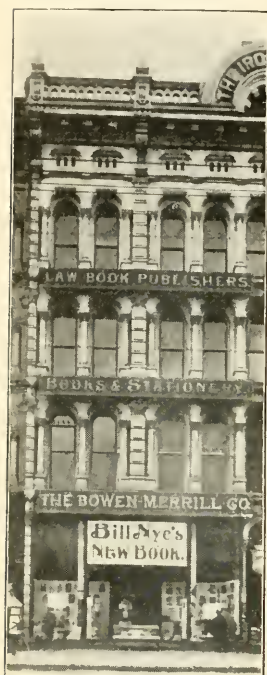 THE IRO
LAW BOOK PUBLISHERS.
BOOKS & STATIONERY.
THE BOWEN-MERRILL CO.
Bill Nye's
NEW BOOK.